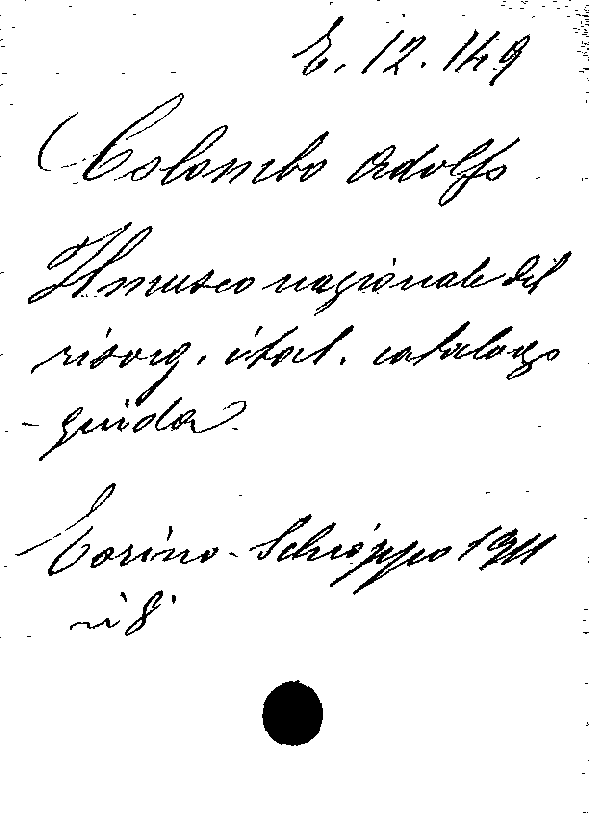 E. 12. 149
Colombo Adolfo
Il museo nazionale del
risorg. ital. catalogo
- guida
Torino - Schioppo 1911
in 8°